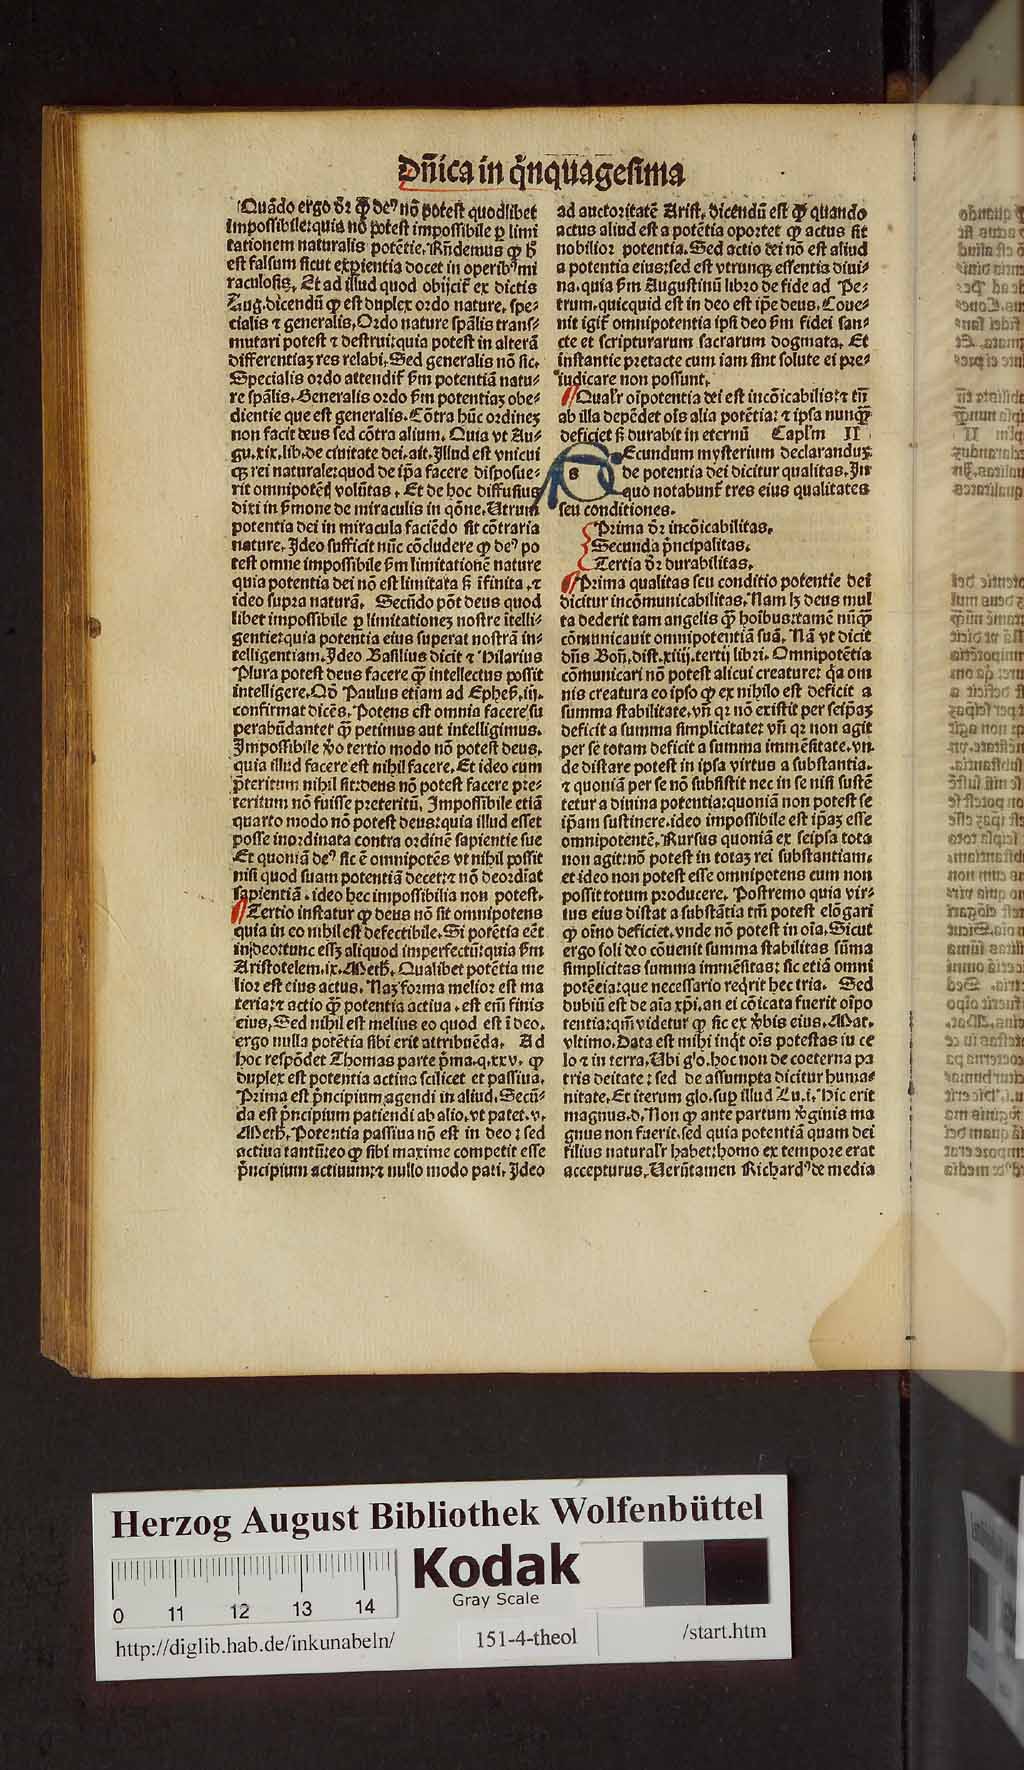 Dn̄ica in qͥnquagesima
Quādo ergo dr̄ ꝙ deꝰ nō potest quodlibet
impossibile: quia nō potest impossibile ꝑ limi
tationem naturalis potētie. Rn̄demus ꝙ h̄
est falsum sicut experientia docet in operibꝰ mi
raculosis. Et ad illud quod obijcit̄ ex dictis
Aug. dicendū ꝙ est duplex ordo nature, spe-
cialis ⁊ generalis. Ordo nature sp̄alis trans-
mutari potest ⁊ destrui: quia potest in alterā
differentiaȝ res relabi. Sed generalis nō sic.
Specialis ordo attendit̄ ẜm potentiā natu-
re sp̄alis. Generalis ordo ẜm potentiaȝ obe-
dientie que est generalis. Cōtra hūc ordineȝ
non facit deus sed cōtra alium. Quia vt Au-
gu. xix. lib. de ciuitate dei. ait. Illud est vnicui
qȝ rei naturale: quod de ip̄a facere disposue-
rit omnipotēs volūtas. Et de hoc diffusius
dixi in ẜmone de miraculis in qōne. Utrum
potentia dei in miracula faciēdo sit cōtraria
nature. Ideo sufficit nūc cōcludere ꝙ deꝰ po
test omne impossibile ẜm limitationē nature
quia potentia dei nō est limitata ẜ īfinita. ⁊
ideo supra naturā. Secūdo pōt deus quod
libet impossibile ꝑ limitationeȝ nostre ītelli-
gentie: quia potentia eius superat nostrā in-
telligentiam. Ideo Basilius dicit ⁊ Hilarius
Plura potest deus facere qꝫ intellectus possit
intelligere. Qō Paulus etiam ad Epheẜ. iij.
confirmat dicēs. Potens est omnia facere su
perabūdanter qꝫ petimus aut intelligimus.
Impossibile v̄o tertio modo nō potest deus.
quia illud facere est nihil facere. Et ideo cum
p̄teritum nihil sit: deus nō potest facere pre-
teritum nō fuisse preteritū. Impossibile etiā
quarto modo nō potest deus: quia illud esset
posse inordinata contra ordinē sapientie sue
Et quoniā deꝰ sic ē omnipotēs vt nihil possit
nisi quod suam potentiā decet: ⁊ nō deordīat
sapientiā. ideo hec impossibilia non potest.
¶ Tertio instatur ꝙ deus nō sit omnipotens
quia in eo nihil est defectibile. Si potētia eēt
in deo: tunc essȝ aliquod imperfectū: quia ẜm
Aristotelem. ix. Meth. Qualibet potētia me
lior est eius actus. Naȝ forma melior est ma
teria: ⁊ actio qꝫ potentia actiua. est em̄ finis
eius. Sed nihil est melius eo quod est ī deo.
ergo nulla potētia sibi erit attribuēda. Ad
hoc respōdet Thomas parte p̄ma. q. xxv. ꝙ
duplex est potentia actiua scilicet et passiua.
Prima est p̄ncipium agendi in aliud. Secū-
da est p̄ncipium patiendi ab alio. vt patet. v.
Meth. Potentia passiua nō est in deo: sed
actiua tantū: eo ꝙ sibi maxime competit esse
p̄ncipium actiuum: ⁊ nullo modo pati. Ideo
ad auctoritatē Arist. dicendū est ꝙ quando
actus aliud est a potētia oportet ꝙ actus sit
nobilior potentia. Sed actio dei nō est aliud
a potentia eius: sed est vtrunqȝ essentia diui-
na. quia ẜm Augustinū libro de fide ad Pe-
trum. quicquid est in deo est ip̄e deus. Coue-
nit igit̄ omnipotentia ipsi deo ẜm fidei san-
cte et scripturarum sacrarum dogmata. Et
instantie pretacte cum iam sint solute ei pre-
iudicare non possunt.
¶ Qualr̄ oīpotentia dei est incōicabilis: ⁊ tn̄
ab illa depēdet oīs alia potētia: ⁊ ipsa nunqꝫ
deficiet ẜ durabit in eternū Capl̄m II
s Ecundum mysterium declaranduȝ
de potentia dei dicitur qualitas. In
quo notabunt̄ tres eius qualitates
seu conditiones.
Prima dr̄ incōicabilitas.
Secunda p̄ncipalitas.
Tertia dr̄ durabilitas.
¶ Prima qualitas seu conditio potentie dei
dicitur incōmunicabilitas. Nam lȝ deus mul
ta dederit tam angelis qꝫ hoībus: tamē nūqꝫ
cōmunicauit omnipotentiā suā. Nā vt dicit
dn̄s Bon̄. dist. xliij. tertij libri. Omnipotētia
cōmunicari nō potest alicui creature: qͥa om
nis creatura eo ipso ꝙ ex nihilo est deficit a
summa stabilitate. vn̄ qꝛ nō existit per seip̄aȝ
deficit a summa simplicitate: vn̄ qꝛ non agit
per se totam deficit a summa immēsitate. vn-
de distare potest in ipsa virtus a substantia.
⁊ quoniā per se nō subsistit nec in se nisi sustē
tetur a diuina potentia: quoniā non potest se
ip̄am sustinere. ideo impossibile est ip̄aȝ esse
omnipotentē. Rursus quoniā ex seipsa tota
non agit: nō potest in totaȝ rei substantiam.
et ideo non potest esse omnipotens cum non
possit totum producere. Postremo quia vir-
tus eius distat a substātia tm̄ potest elōgari
ꝙ oīno deficiet. vnde nō potest in oīa. Sicut
ergo soli deo cōuenit summa stabilitas sūma
simplicitas summa immēsitas: sic etiā omni
potēcia: que necessario reqͥrit hec tria. Sed
dubiū est de aīa xp̄i. an ei cōicata fuerit oīpo
tentia: qm̄ videtur ꝙ sic ex v̄bis eius. Mat.
vltimo. Data est mihi inqͥt oīs potestas in ce
lo ⁊ in terra. Ubi glo. hoc non de coeterna pa
tris deitate: sed de assumpta dicitur huma-
nitate. Et iterum glo. suꝑ illud Lu. i. Hic erit
magnus. d. Non ꝙ ante partum v̄ginis ma
gnus non fuerit. sed quia potentiā quam dei
filius naturalr̄ habet: homo ex tempore erat
accepturus. Uerūtamen Richardꝰ de media
Herzog August Bibliothek Wolfenbüttel
Kodak
Gray Scale
0 11 12 13 14
http://diglib.hab.de/inkunabeln/ 151-4-theol /start.htm